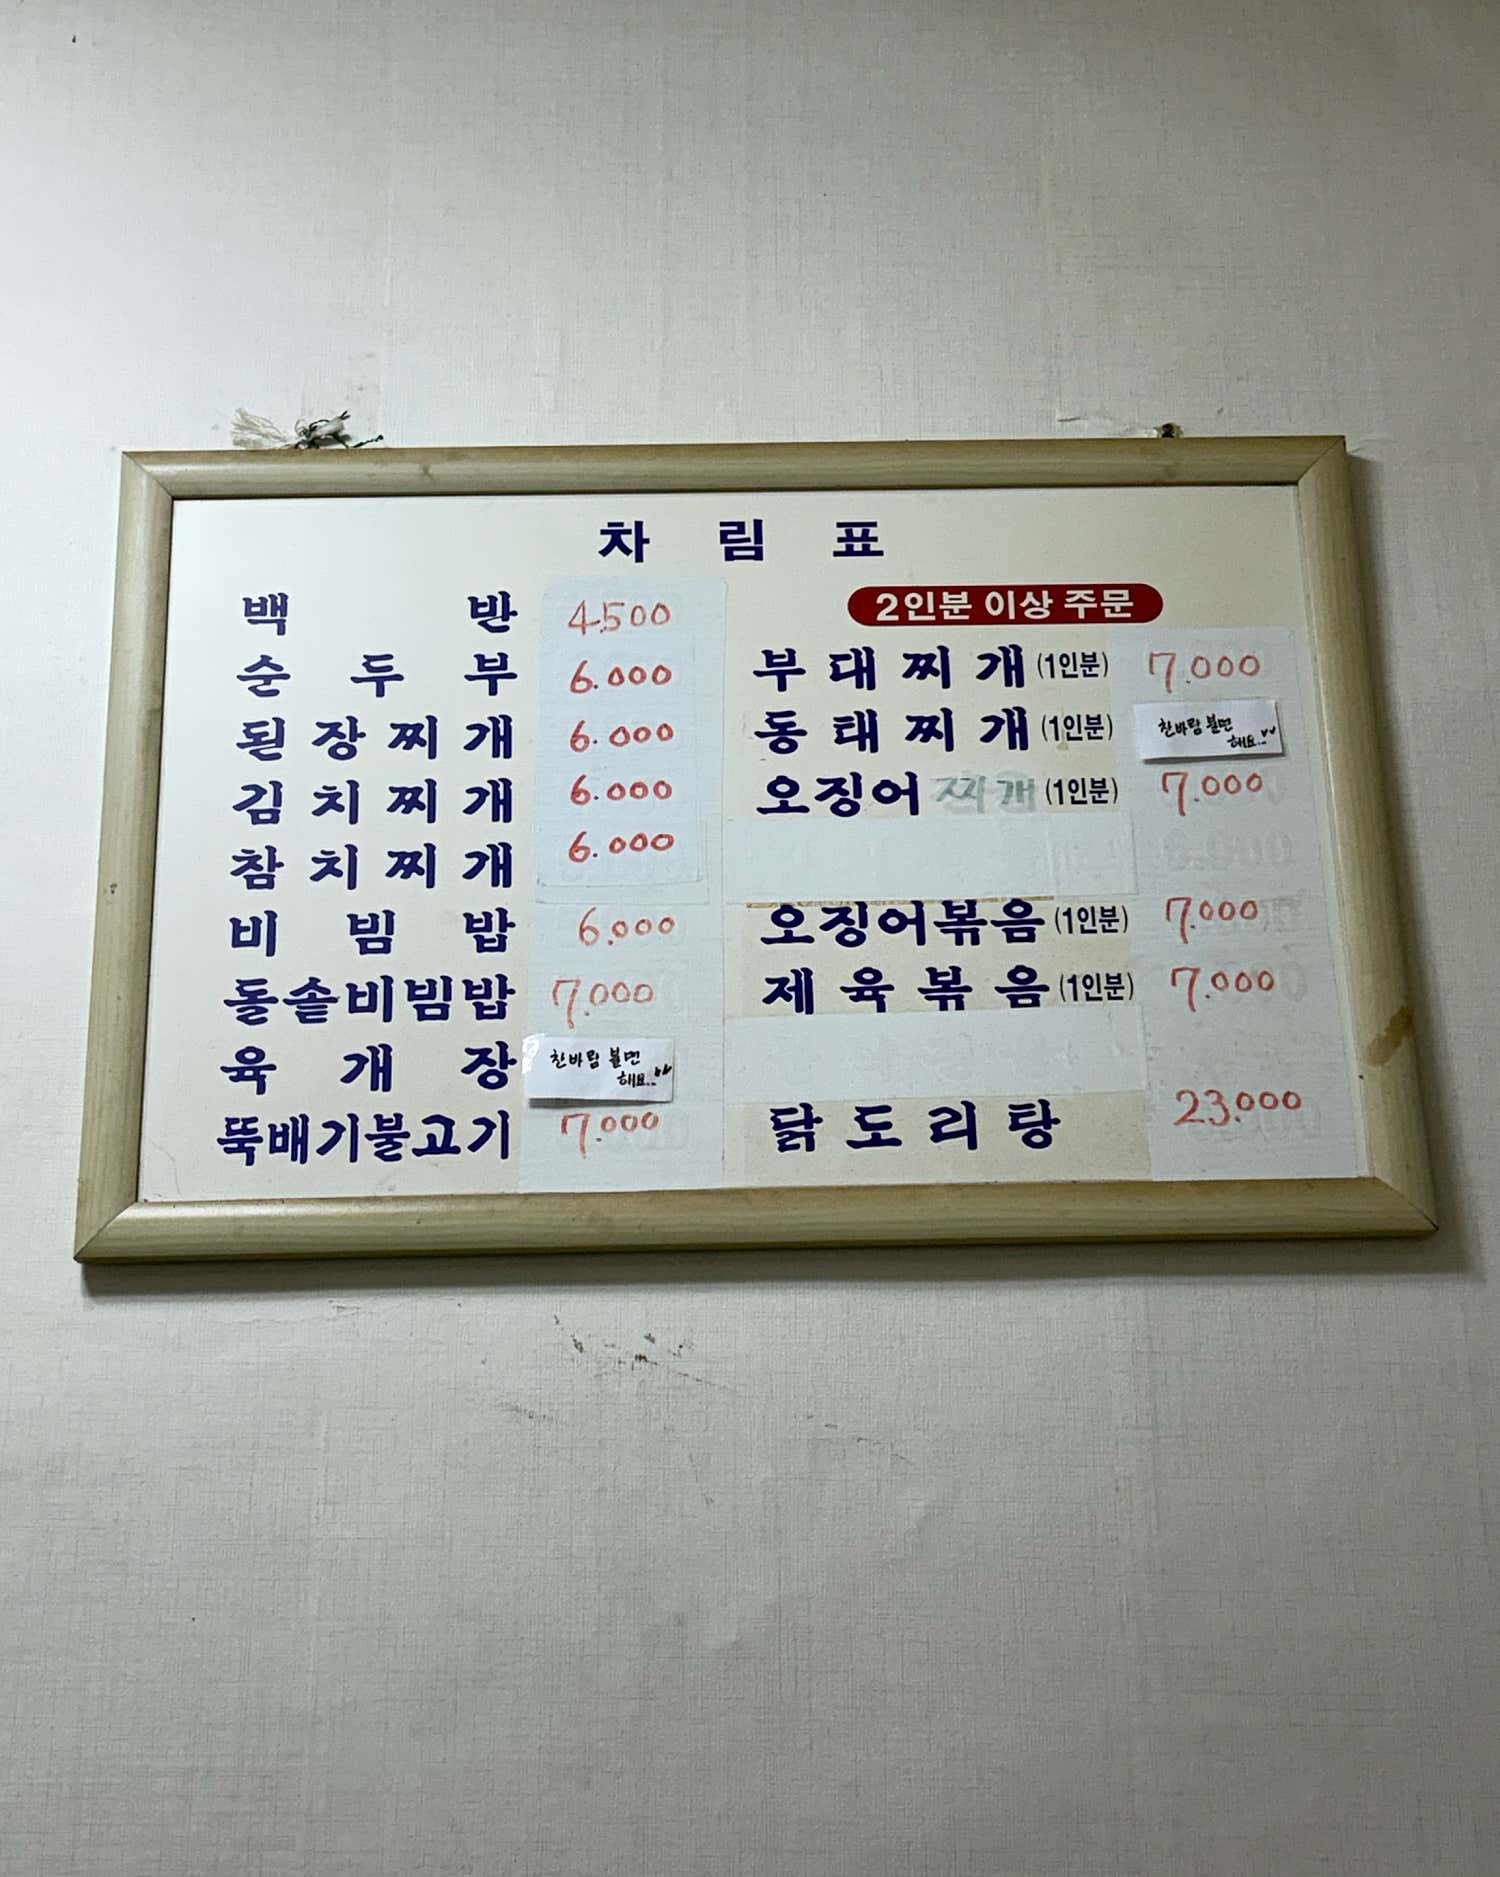 차림표
백반 4.500
순두부 6.000
된장찌개 6.000
김치찌개 6.000
참치찌개 6.000
비빔밥 6.000
돌솥비빔밥 7.000
육개장 찬바람 불면
해요..
뚝배기불고기 7.000
2인분 이상 주문
부대찌개 (1인분) 7.000
동태찌개 (1인분) 찬바람 불면
해요..
오징어찌개 (1인분) 7.000
오징어볶음 (1인분) 7.000
제육볶음 (1인분) 7.000
닭도리탕 23.000